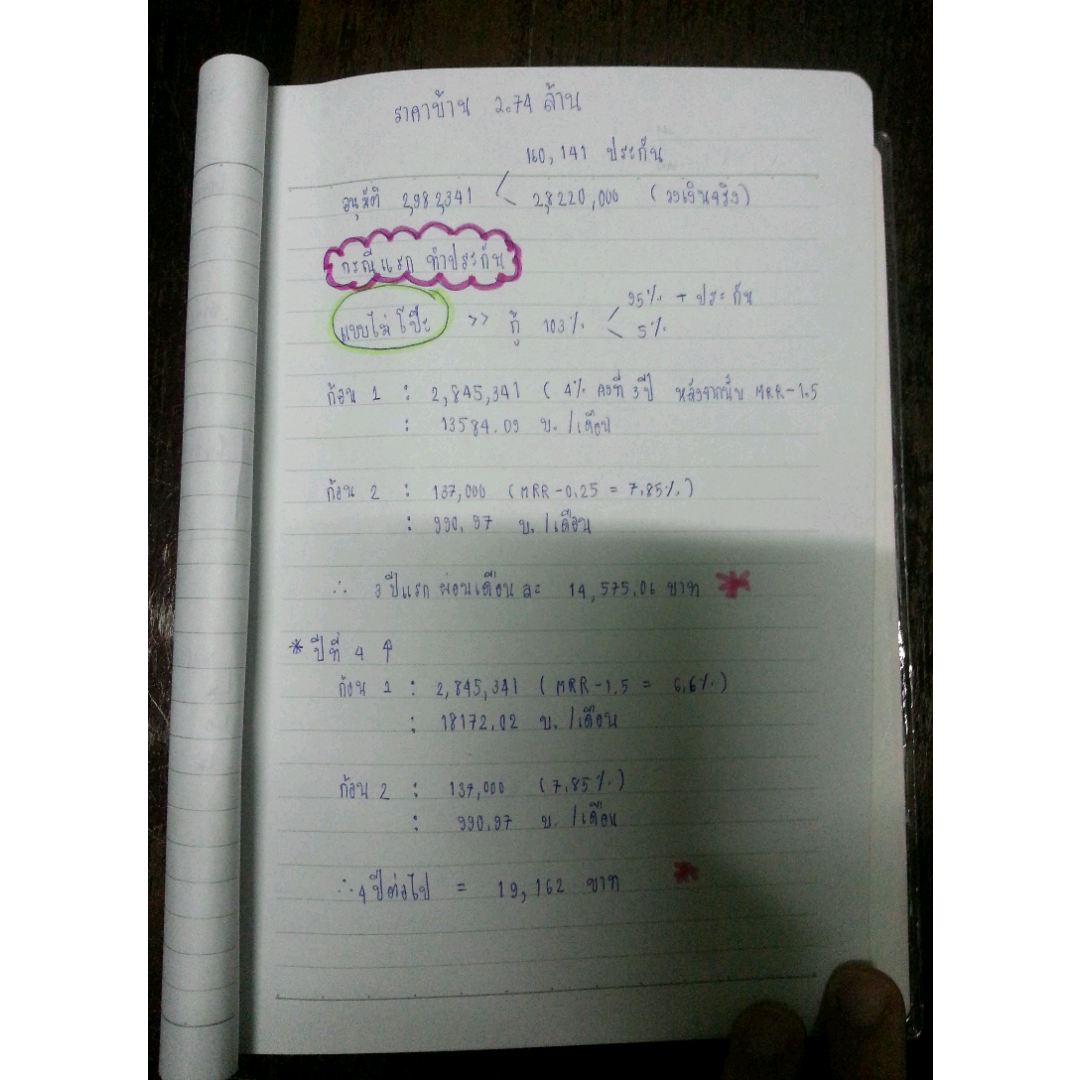 ราคาบ้าน 2.74 ล้าน
160,141 ประกัน
อนุมัติ 2,982,341
2,8220,000 (วงเงินจริง)
กรณีแรก ทำประกัน
95% + ประกัน
แบบไม่โป๊ะ >> กู้ 103%
5%
ก้อน 1 : 2,845,341 ( 4% คงที่ 3 ปี หลังจากนั้น MRR-1.5
: 13584.09 บ./เดือน
ก้อน 2 : 137,000 (MRR-0.25 = 7.85%)
: 990.97 บ./เดือน
∴ 3 ปีแรก ผ่อนเดือนละ 14,575.06 บาท *
* ปีที่ 4 ↑
ก้อน 1 : 2,845,341 ( MRR-1.5 = 6.6%)
: 18172.02 บ./เดือน
ก้อน 2 : 137,000 (7.85%)
: 990.97 บ./เดือน
∴ 4 ปีต่อไป = 19,162 บาท *